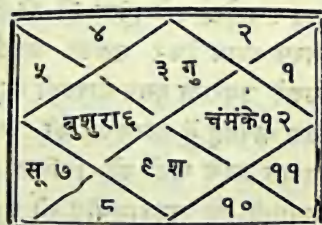 ४ २
५ ३ गु १
बुशुरा६ चंमंके१२
सू ७ ९ श ११
८ १०